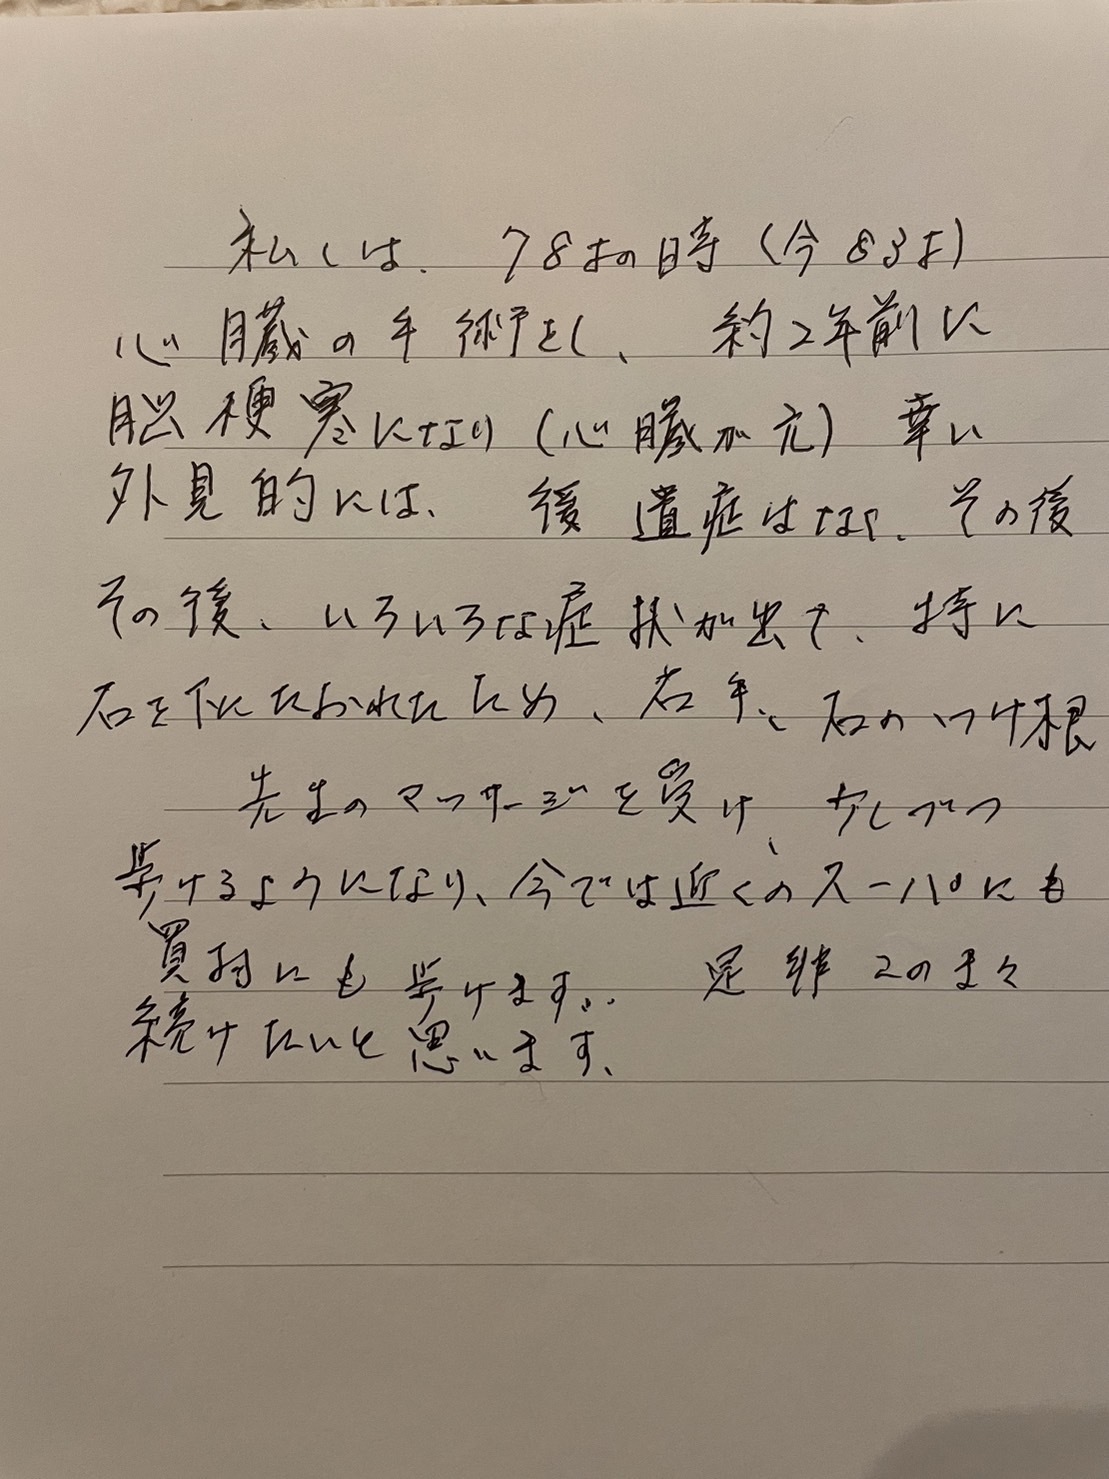 私しは、78才の時（今83才）
心臓の手術をし、約2年前に
脳梗塞になり（心臓が元）幸い
外見的には、後遺症はなく、その後
その後、いろいろな症状が出て、特に
右を下にたおれたため、右手、右のつけ根
先生のマッサージを受け、少しづつ
歩けるようになり、今では近くのスーパーにも
買物にも歩けます。. 是非このまゝ
続けたいと思います、